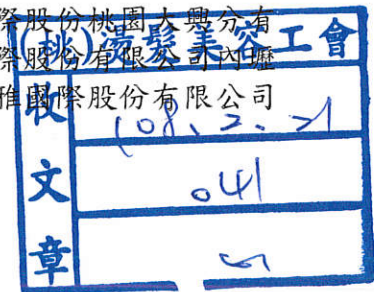 際股份桃園大興分有
際股份有限公司內壢
雅國際股份有限公司
(桃)燙髮美容工會
收文章
108、2、21
041